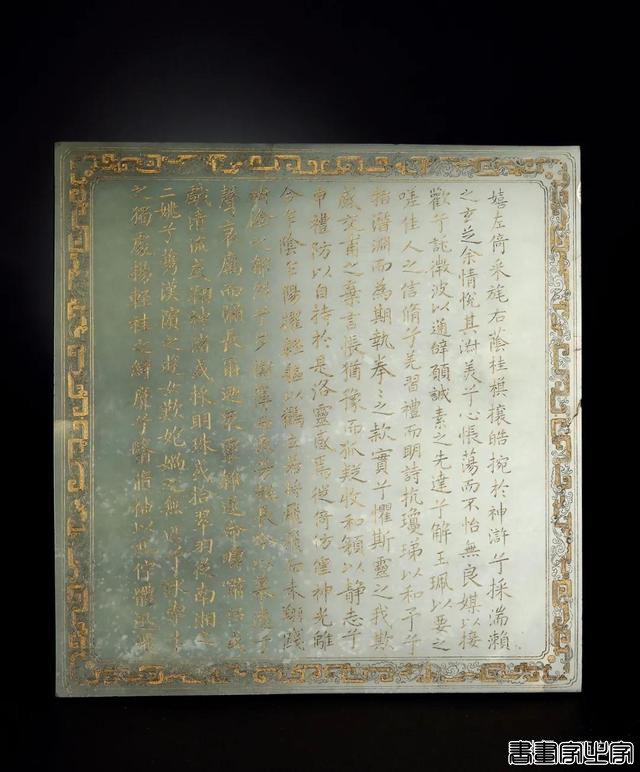 嬉左倚采旄右蔭桂旗攘皓捥於神滸兮採湍瀨
之玄芝余情悅其淑美兮心悵蕩而不怡無良媒以接
歡兮託微波以通辭願誠素之先達兮解玉珮以要之
嗟佳人之信脩兮羌習禮而明詩抗瓊珶以和予兮
指潛淵而為期執拳々之款實兮懼斯靈之我欺
感交甫之棄言悵猶豫而狐疑收和顏以靜志兮
申禮防以自持於是洛靈感焉徙倚仿偟神光離
合乍陰乍陽擢輕軀以鶴立若將飛而未翔踐
長吟以慕遠兮
聲哀厲而彌長爾迺眾靈雜遝命儔嘯侶或
戲清流或翔神渚或採明珠或拾翠羽從南湘之
二姚兮攜漢濱之游女歎匏媧之無匹兮詠牽牛
之獨處揚輕袿之綺靡兮翳脩袖以延佇體迅飛
書畫字